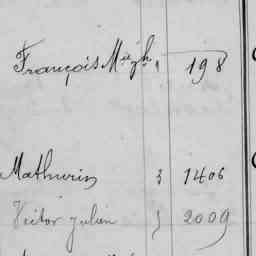 François M 198
Mathurin 3 1406
Victor Julien 3 2009